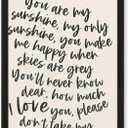 You are my
sunshine, my only
sunshine, you make
me happy when
skies are grey
You'll never know
dear, how much
I love you, please
don't take my